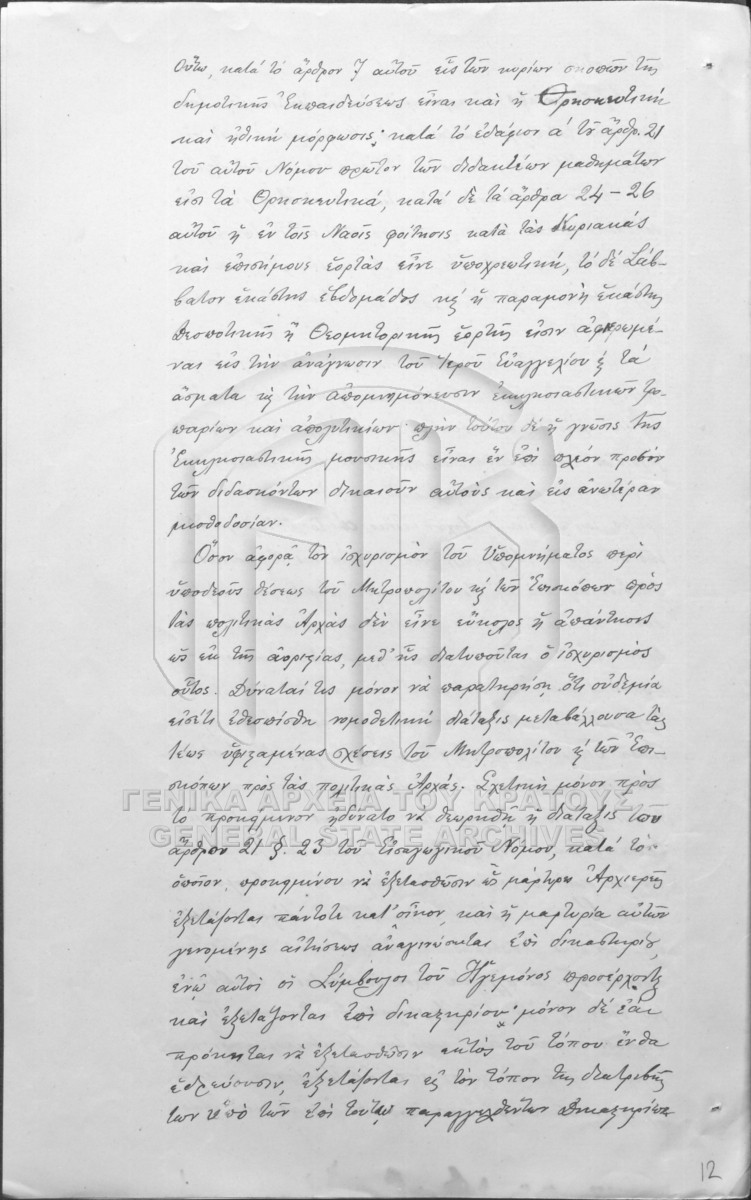 Οὕτω, κατὰ τὸ ἄρθρον 7 αὐτοῦ εἷς τῶν κυρίων σκοπῶν τῆς
δημοτικῆς Ἐκπαιδεύσεως εἶναι καὶ ἡ Θρησκευτικὴ
καὶ ἠθικὴ μόρφωσις· κατὰ τὸ ἐδάφιον α΄ τοῦ ἄρθρ. 21
τοῦ αὐτοῦ Νόμου πρῶτον τῶν διδακτέων μαθημάτων
εἰσὶ τὰ Θρησκευτικά, κατὰ δὲ τὰ ἄρθρα 24 – 26
αὐτοῦ ἡ ἐν τοῖς Ναοῖς φοίτησις κατὰ τὰς Κυριακὰς
καὶ ἐπισήμους ἑορτὰς εἶνε ὑποχρεωτική, τὸ δὲ Σάβ-
βατον ἑκάστης ἑβδομάδος κ̀ ἡ παραμονὴ ἑκάστης
Δεσποτικῆς ἢ Θεομητορικῆς ἑορτῆς εἰσὶν ἀφιερωμέ-
ναι εἰς τὴν ἀνάγνωσιν τοῦ Ἱεροῦ Εὐαγγελίου κ̀ τὰ
ᾄσματα κ̀ τὴν ἀπομνημόνευσιν ἐκκλησιαστικῶν τρο-
παρίων καὶ ἀπολυτικίων· πλὴν τούτου δὲ ἡ γνῶσις τῆς
Ἐκκλησιαστικῆς μουσικῆς εἶναι ἓν ἐπὶ πλέον προσὸν
τῶν διδασκόντων δικαιοῦν αὐτοὺς καὶ εἰς ἀνωτέραν
μισθοδοσίαν.
Ὅσον ἀφορᾷ τὸν ἰσχυρισμὸν τοῦ Ὑπομνήματος περὶ
ὑποδεοῦς θέσεως τοῦ Μητροπολίτου κ̀ τῶν Ἐπισκόπων πρὸς
τὰς πολιτικὰς Ἀρχὰς δὲν εἶνε εὔκολος ἡ ἀπάντησις
ὡς ἐκ τῆς ἀοριστίας, μεθ' ἧς διατυποῦται ὁ ἰσχυρισμὸς
οὗτος. Δύναταί τις μόνον νὰ παρατηρήσῃ ὅτι οὐδεμία
εἰσέτι ἐθεσπίσθη νομοθετικὴ διάταξις μεταβάλλουσα τὰς
τέως ὑφισταμένας σχέσεις τοῦ Μητροπολίτου κ̀ τῶν Ἐπι-
σκόπων πρὸς τὰς πολιτικὰς Ἀρχάς. Σχετικὴ μόνον πρὸς
τὸ προκείμενον ἠδύνατο νὰ θεωρηθῇ ἡ διάταξις τοῦ
ἄρθρου 21 §. 23 τοῦ Εἰσαγωγικοῦ Νόμου, κατὰ τὸ
ὁποῖον, προκειμένου νὰ ἐξετασθῶσιν ὡς μάρτυρες Ἀρχιερεῖς
ἐξετάζονται πάντοτε κατ' οἶκον, καὶ ἡ μαρτυρία αὐτῶν
γενομένης αἰτήσεως ἀναγινώσκεται ἐπὶ δικαστηρίου,
ἐνῷ αὐτοὶ οἱ Σύμβουλοι τοῦ Ἡγεμόνος προσέρχονται
καὶ ἐξετάζονται ἐπὶ δικαστηρίου· μόνον δὲ ἐὰν
πρόκηται νὰ ἐξετασθῶσιν ἐκτὸς τοῦ τόπου ἔνθα
ἑδρεύουσιν, ἐξετάζονται εἰς τὸν τόπον τῆς διατριβῆς
των ὑπὸ τῶν ἐπὶ τούτῳ παραγγελθέντων δικαστηρίων
ΓΕΝΙΚΑ ΑΡΧΕΙΑ ΤΟΥ ΚΡΑΤΟΥΣ
GENERAL STATE ARCHIVES
12